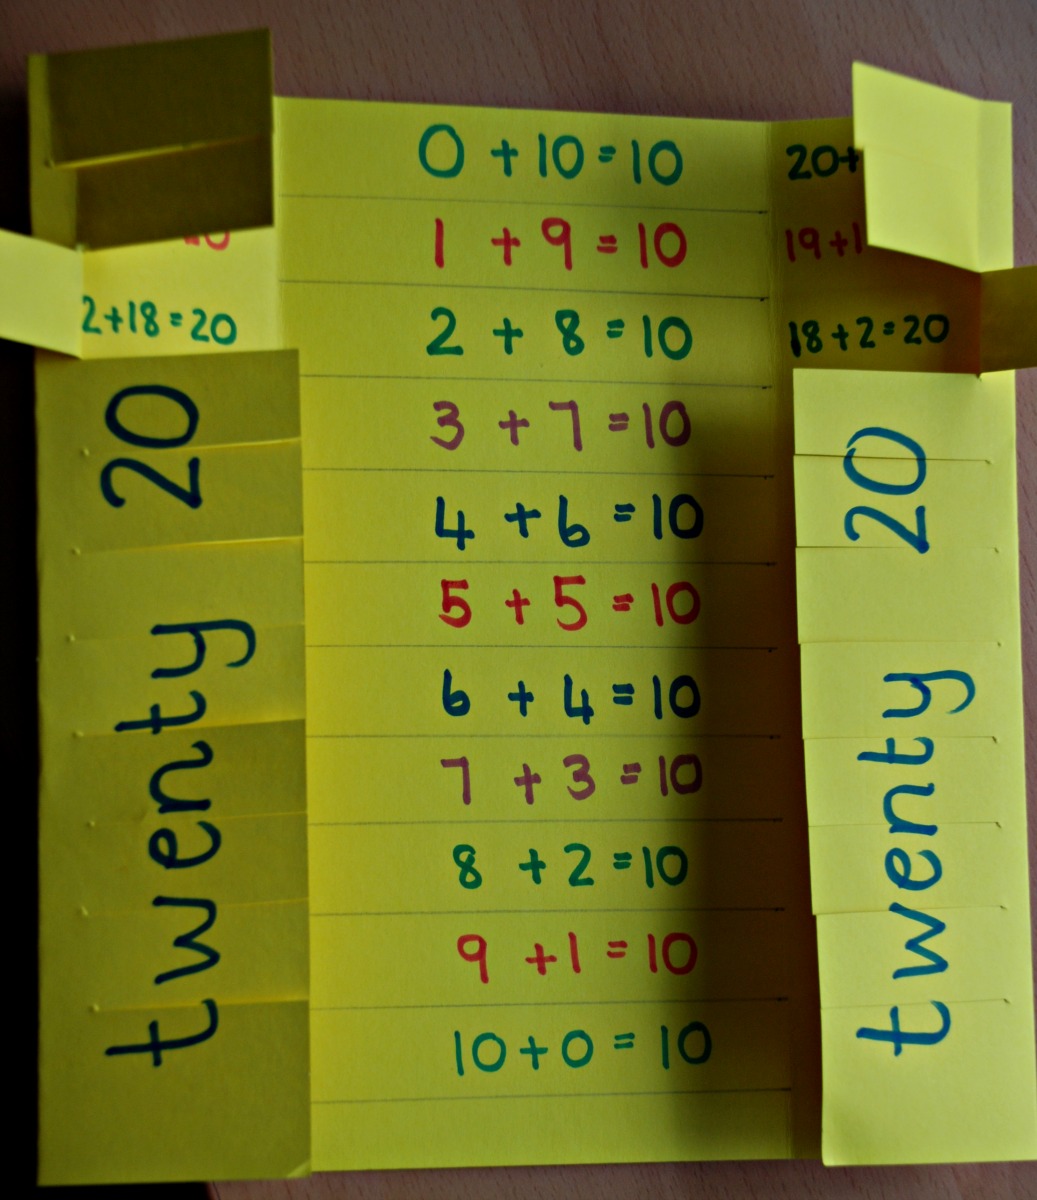 0 + 10 = 10
1 + 9 = 10
2 + 8 = 10
3 + 7 = 10
4 + 6 = 10
5 + 5 = 10
6 + 4 = 10
7 + 3 = 10
8 + 2 = 10
9 + 1 = 10
10 + 0 = 10
2+18=20
twenty 20
20+
19+1
18+2=20
twenty 20